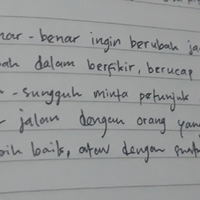 nar - benar ingin berubah ja
ah dalam berfikir, berucap
- sungguh minta petunjuk
jalan dengan orang yan
bih baik, atau dengan